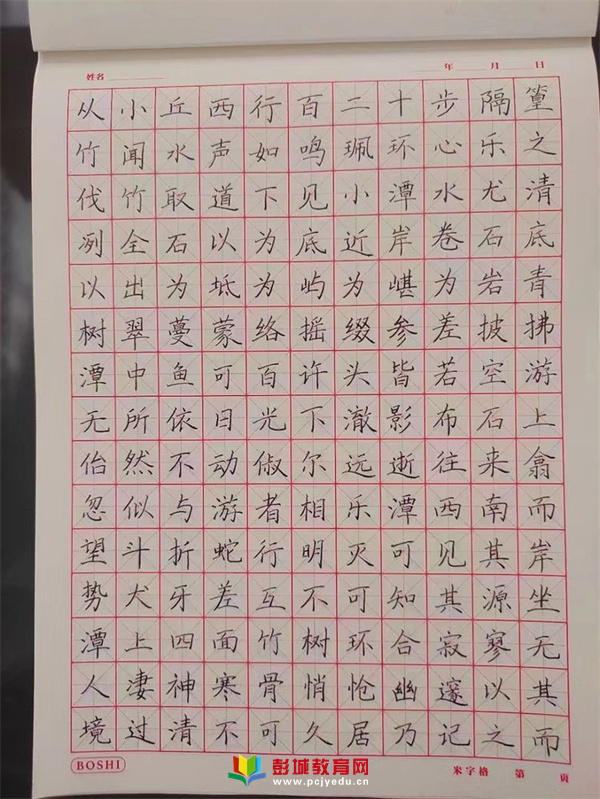 姓名 年 月 日
从小丘西行百二十步隔篁
竹闻水声如鸣珮环心乐之
伐竹取道下见小潭水尤清
冽全石以为底近岸卷石底
以出为坻为屿为嵁为岩青
树翠蔓蒙络摇缀参差披拂
潭中鱼可百许头皆若空游
无所依日光下澈影布石上
佁然不动俶尔远逝往来翕
忽似与游者相乐潭西南而
望斗折蛇行明灭可见其岸
势犬牙差互不可知其源坐
潭上四面竹树环合寂寥无
人凄神寒骨悄怆幽邃以其
境过清不可久居乃记之而
BOSHI 米字格 第 页
彭城教育网
www.pcjyedu.cn